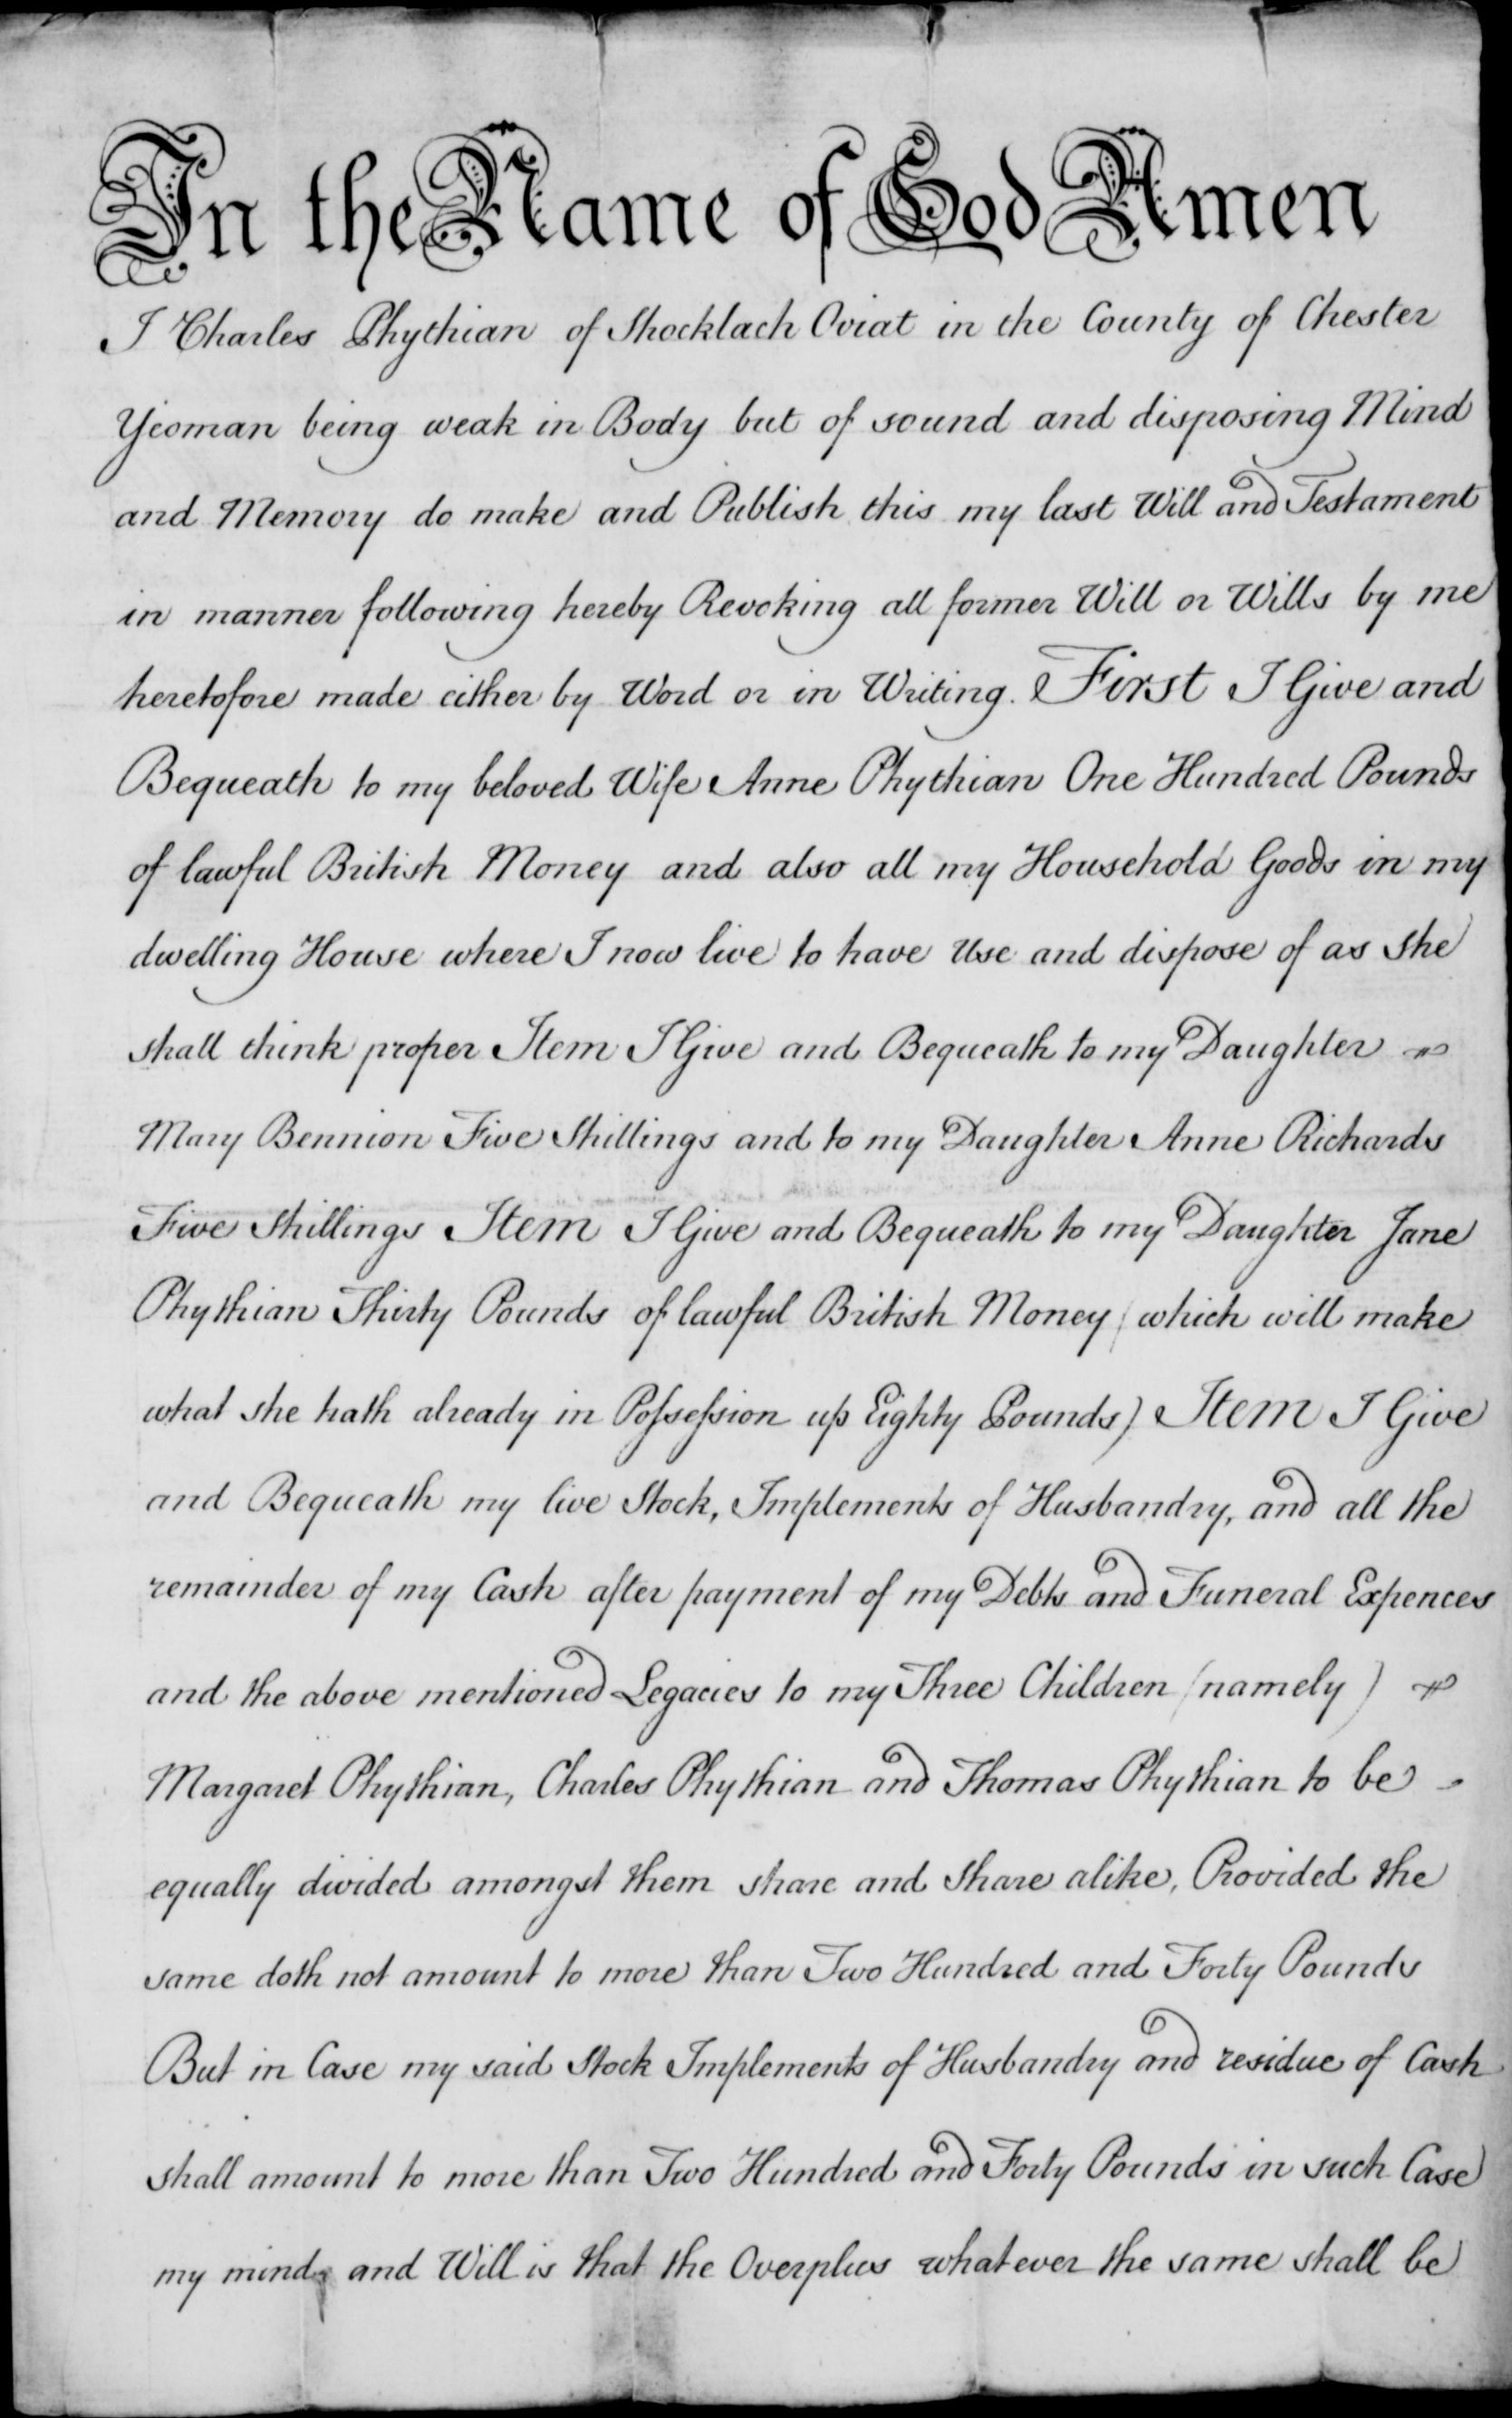 In the Name of God Amen
I Charles Phythian of Shocklach Oviat in the County of Chester
Yeoman being weak in Body but of sound and disposing Mind
and Memory do make and Publish this my last Will and Testament
in manner following hereby Revoking all former Will or Wills by me
heretofore made either by Word or in Writing. First I Give and
Bequeath to my beloved Wife Anne Phythian One Hundred Pounds
of lawful British Money and also all my Household Goods in my
dwelling House where I now live to have Use and dispose of as she
shall think proper Item I Give and Bequeath to my Daughter
Mary Bennion Five Shillings and to my Daughter Anne Richards
Five Shillings Item I Give and Bequeath to my Daughter Jane
Phythian Thirty Pounds of lawful British Money (which will make
what she hath already in Poſseſsion up Eighty Pounds) Item I Give
and Bequeath my live Stock, Implements of Husbandry, and all the
remainder of my Cash after payment of my Debts and Funeral Expences
and the above mentioned Legacies to my Three Children (namely)
Margaret Phythian, Charles Phythian and Thomas Phythian to be
equally divided amongst them share and share alike, Provided the
same doth not amount to more than Two Hundred and Forty Pounds
But in Case my said Stock Implements of Husbandry and residue of Cash
shall amount to more than Two Hundred and Forty Pounds in such Case
my mind and Will is that the Overplus whatever the same shall be